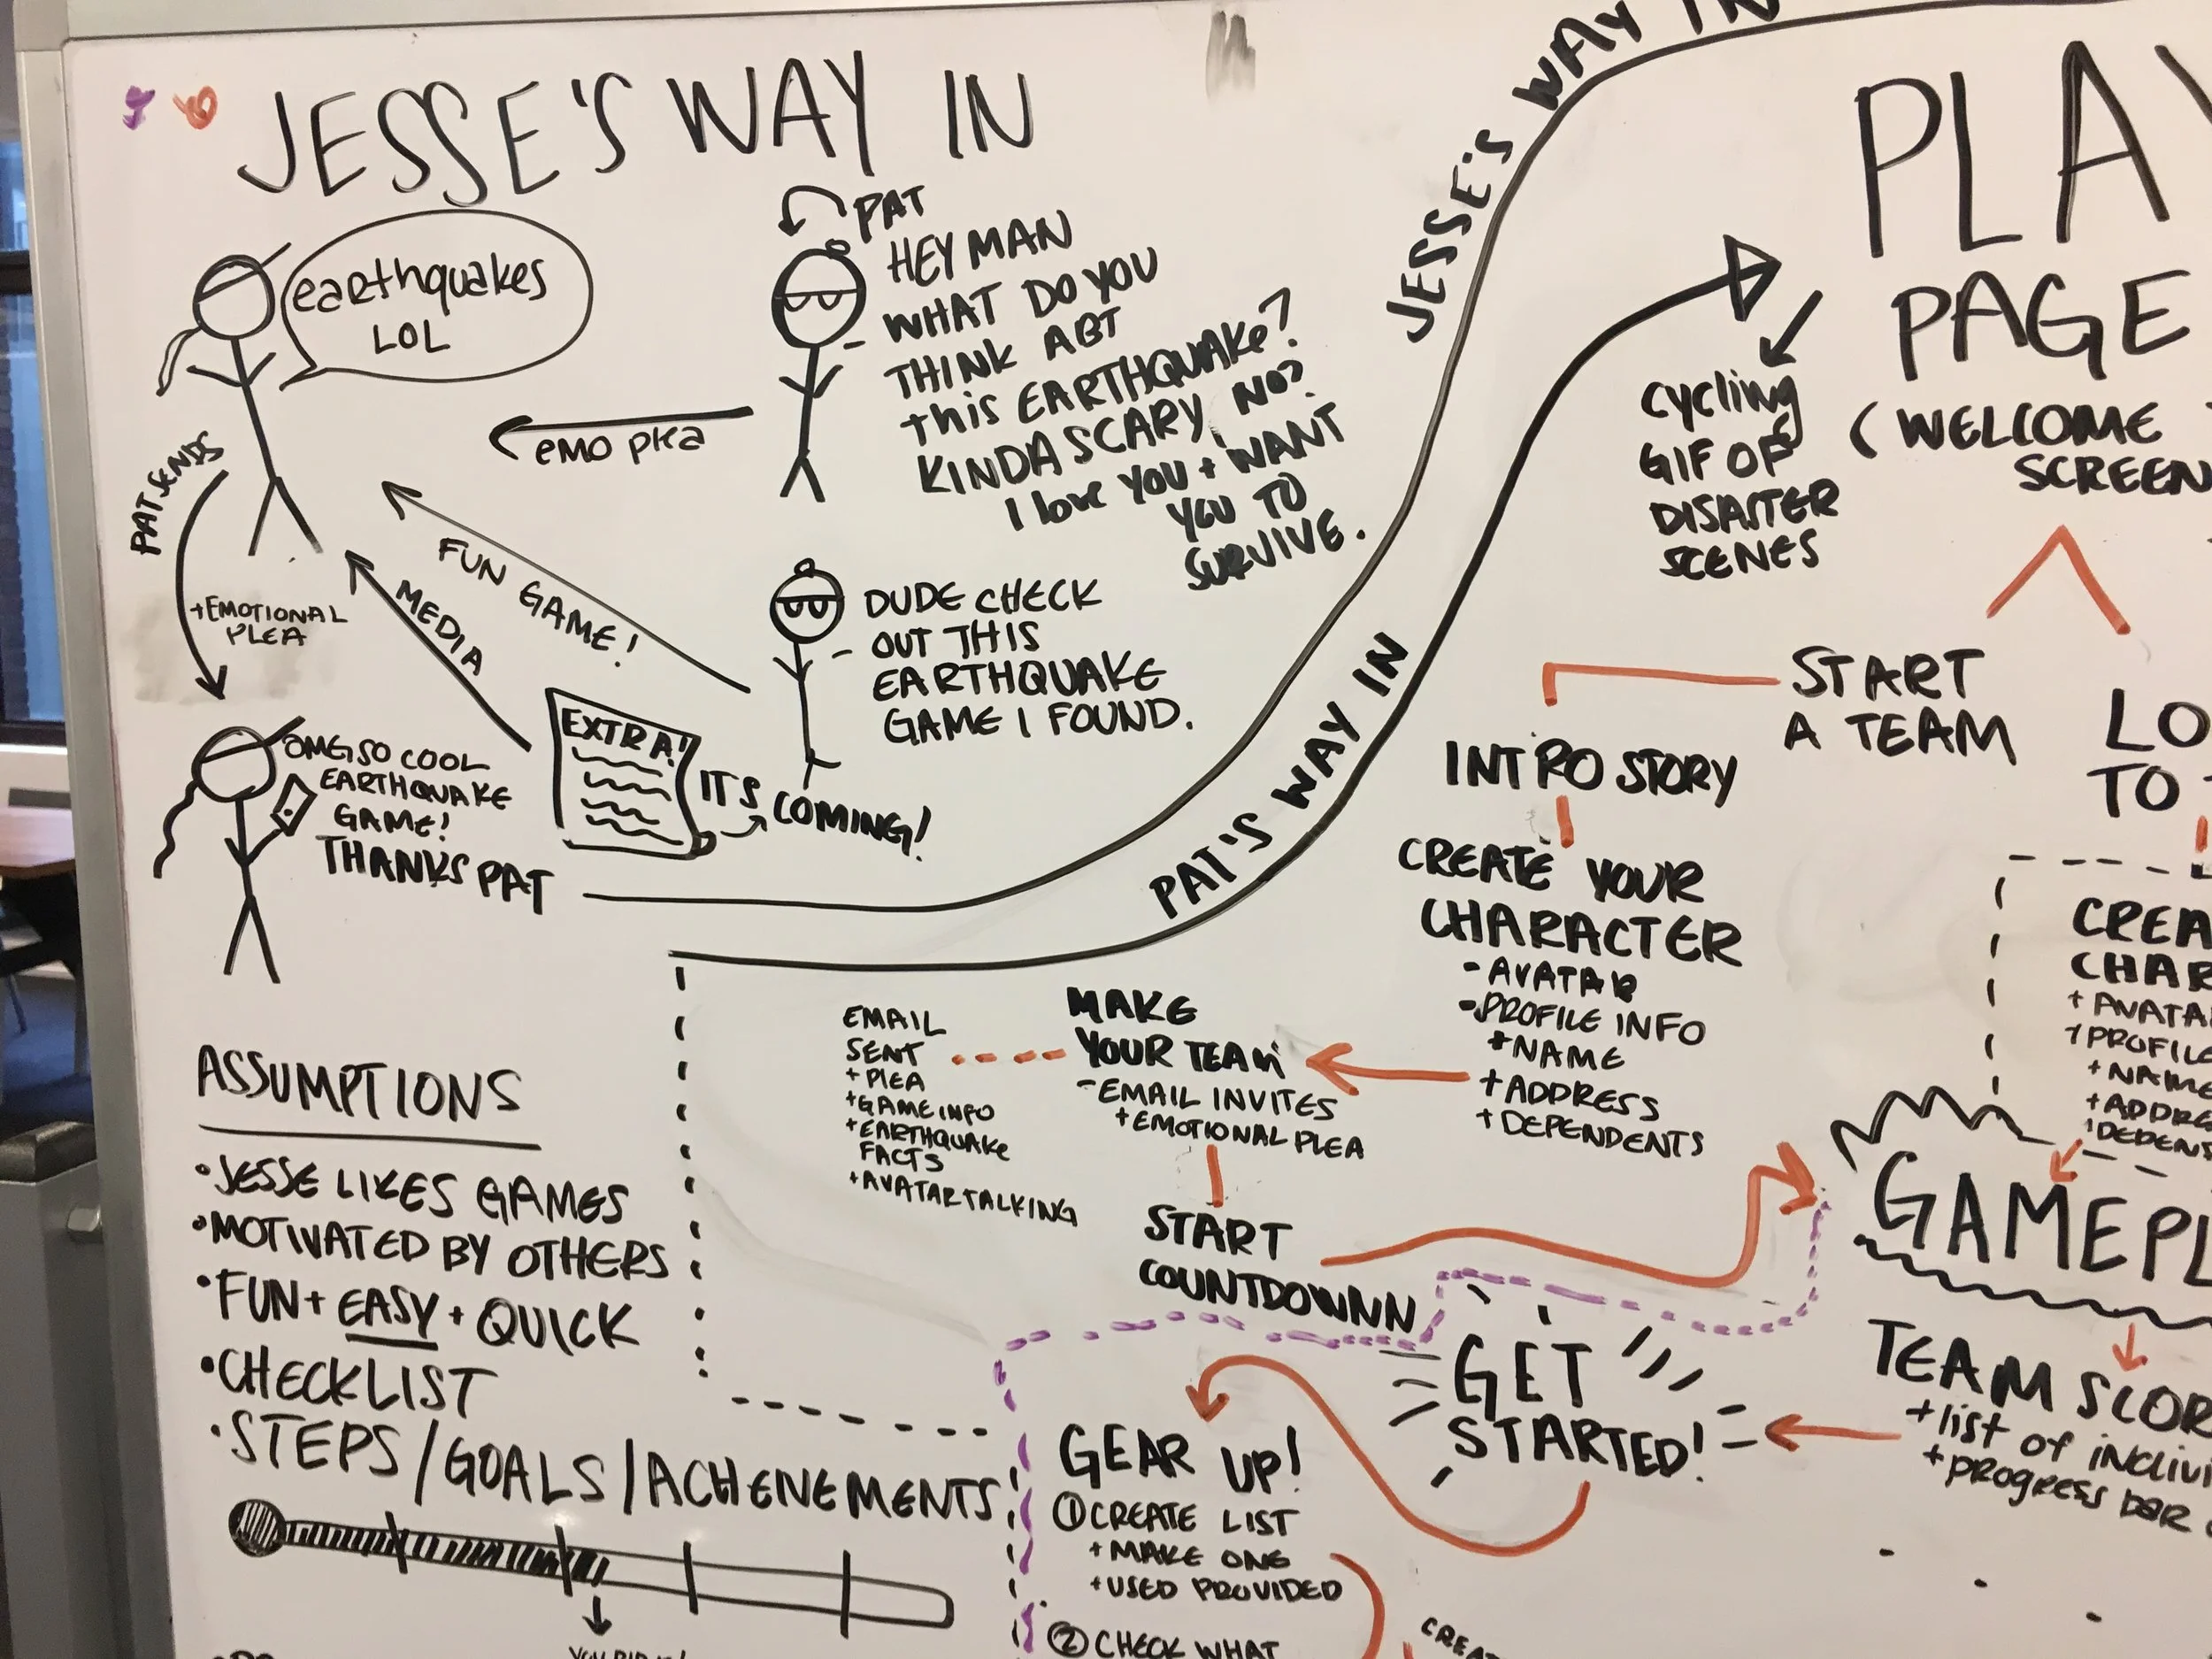 JESSE'S WAY IN
earthquakes
LOL
PAT
HEY MAN
WHAT DO YOU
THINK ABT
this EARTHQUAKE?
KINDA SCARY, NO?
I love YOU + WANT
YOU TO
SURVIVE.
EMO PLEA
PAT SENDS
+EMOTIONAL
PLEA
FUN GAME!
MEDIA
DUDE CHECK
OUT THIS
EARTHQUAKE
GAME I FOUND.
EXTRA!
IT'S COMING!
OMG SO COOL
EARTHQUAKE
GAME!
THANKS PAT
JESSE'S WAY IN
PAT'S WAY IN
PLAY
PAGE
(WELCOME
SCREEN
cycling
GIF OF
DISASTER
SCENES
START
A TEAM
LO
TO
INTRO STORY
CREATE YOUR
CHARACTER
- AVATAR
- PROFILE INFO
+NAME
+ADDRESS
+DEPENDENTS
CREA
CHAR
+ AVATA
PROFILE
+NAME
+ADDRE
DEPENS
MAKE
YOUR TEAM
- EMAIL INVITES
+ EMOTIONAL PLEA
EMAIL
SENT
+ PLEA
+GAME INFO
+EARTHQUAKE
FACTS
+AVATAR TALKING
START
COUNTDOWNN
GAMEPL
TEAM SCOR
+list of indivi
+progress bar
GET
STARTED!
GEAR UP!
① CREATE LIST
+ MAKE ONE
+ USED PROVIDED
② CHECK WHAT
CREAT
ASSUMPTIONS
• JESSE LIKES GAMES
• MOTIVATED BY OTHERS
• FUN + EASY + QUICK
• CHECKLIST
• STEPS/GOALS/ACHIEVEMENTS